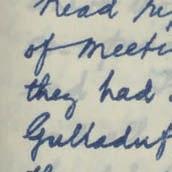 Read
of meeti
they had
Gulladuf